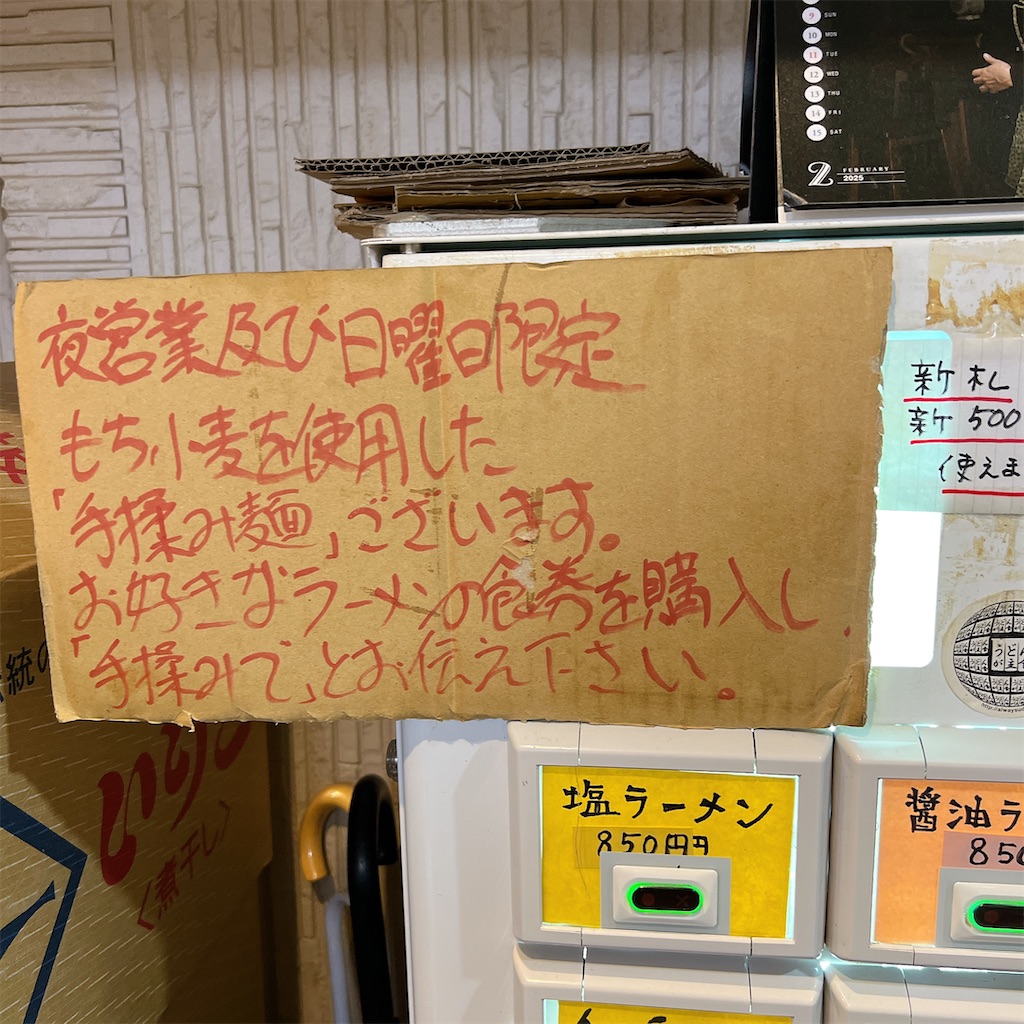 9 SUN
10 MON
11 TUE
12 WED
13 THU
14 FRI
15 SAT
2 FEBRUARY
2025
夜営業及び日曜日限定
もち小麦を使用した
「手揉み麺」ございます。
お好きなラーメンの食券を購入し、
「手揉みで」とお伝え下さい。
新札
新500
使えま
うどん
が主
統の
いりこ
〈煮干し〉
塩ラーメン
850円
醤油ラ
850